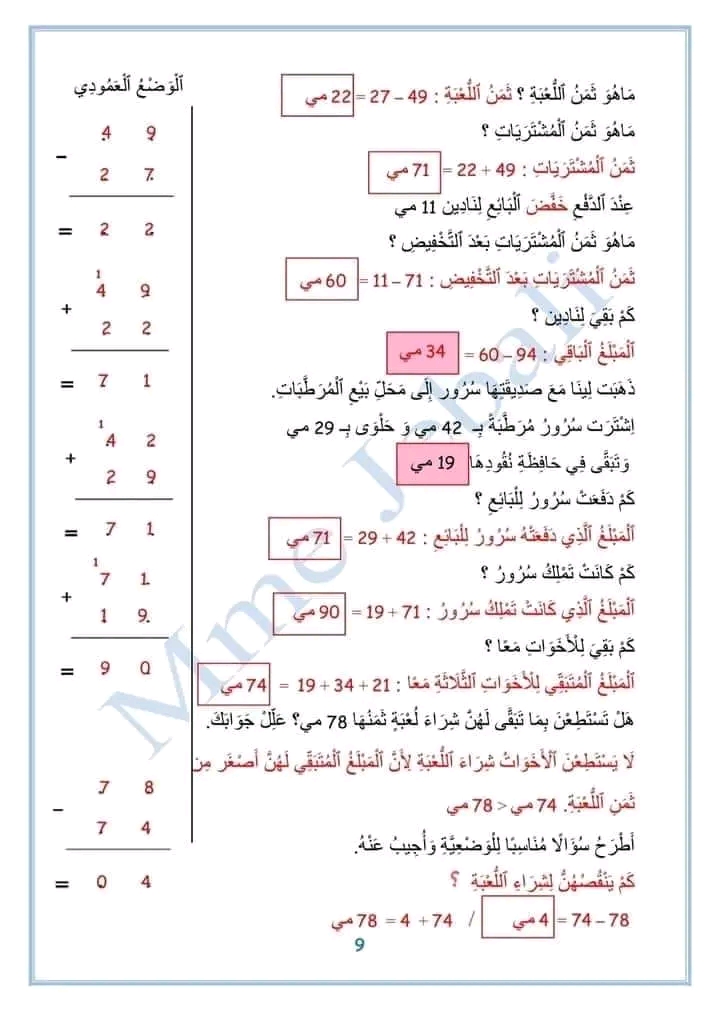 مَاهُوَ ثَمَنُ ٱللُّعْبَةِ ؟ ثَمَنُ ٱللُّعْبَةِ : 49 – 27 = 22 مي
مَاهُوَ ثَمَنُ ٱلْمُشْتَرَيَاتِ ؟
ثَمَنُ ٱلْمُشْتَرَيَاتِ : 49 + 22 = 71 مي
عِنْدَ ٱلدَّفْعِ خَفَّضَ ٱلْبَائِعُ لِنَادِين 11 مي
مَاهُوَ ثَمَنُ ٱلْمُشْتَرَيَاتِ بَعْدَ ٱلتَّخْفِيضِ ؟
ثَمَنُ ٱلْمُشْتَرَيَاتِ بَعْدَ ٱلتَّخْفِيضِ : 71 – 11 = 60 مي
كَمْ بَقِيَ لِنَادِين ؟
ٱلْمَبْلَغُ ٱلْبَاقِي : 94 – 60 = 34 مي
ذَهَبَت لِينَا مَعَ صَدِيقَتِهَا سُرُور إِلَى مَحَلِّ بَيْعِ ٱلْمُرَطَّبَاتِ.
اِشْتَرَت سُرُورُ مُرَطَّبَةً بِـ 42 مي وَ حَلْوَى بِـ 29 مي
وَتَبَقَّى فِي حَافِظَةِ نُقُودِهَا 19 مي
كَمْ دَفَعَتْ سُرُورُ لِلْبَائِعِ ؟
ٱلْمَبْلَغُ ٱلَّذِي دَفَعَتْهُ سُرُورُ لِلْبَائِعِ : 42 + 29 = 71 مي
كَمْ كَانَتْ تَمْلِكُ سُرُورُ ؟
ٱلْمَبْلَغُ ٱلَّذِي كَانَتْ تَمْلِكُ سُرُورُ : 71 + 19 = 90 مي
كَمْ بَقِيَ لِلْأَخَوَاتِ مَعًا ؟
ٱلْمَبْلَغُ ٱلْمُتَبَقِّي لِلْأَخَوَاتِ ٱلثَّلَاثَةِ مَعًا : 21 + 34 + 19 = 74 مي
هَلْ تَسْتَطِعْنَ بِمَا تَبَقَّى لَهُنَّ شِرَاءَ لُعْبَةٍ ثَمَنُهَا 78 مي؟ عَلِّلْ جَوَابَكَ.
لَا يَسْتَطِعْنَ ٱلْأَخَوَاتُ شِرَاءَ ٱللُّعْبَةِ لِأَنَّ ٱلْمَبْلَغَ ٱلْمُتَبَقِّي لَهُنَّ أَصْغَر مِن
ثَمَنِ ٱللُّعْبَةِ. 74 مي < 78 مي
أَطْرَحُ سُؤَالًا مُنَاسِبًا لِلْوَضْعِيَّةِ وَأُجِيبُ عَنْهُ.
كَمْ يَنْقُصُهُنَّ لِشِرَاءِ ٱللُّعْبَةِ ؟
78 – 74 = 4 مي / 74 + 4 = 78 مي
ٱلْوَضْعُ ٱلْعَمُودِي
4 9
-
2 7
= 2 2
1
4 9
+
2 2
= 7 1
1
4 2
+
2 9
= 7 1
1
7 1
+
1 9
= 9 0
7 8
-
7 4
= 0 4
9
Mme Jebali